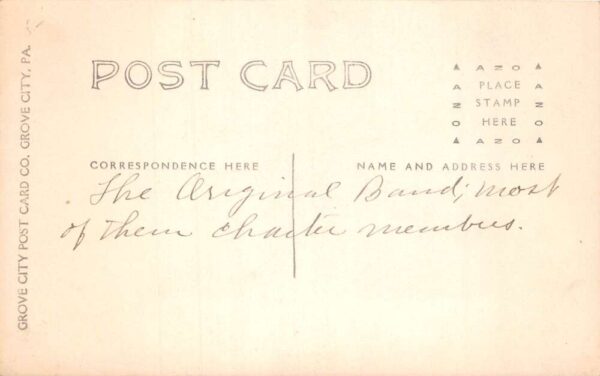 POST CARD
▲ AZO ▲
PLACE
STAMP
HERE
▲ AZO ▲
AZO
AZO
CORRESPONDENCE HERE
NAME AND ADDRESS HERE
The Original Band; most
of them charter members.
GROVE CITY POST CARD CO. GROVE CITY, PA.